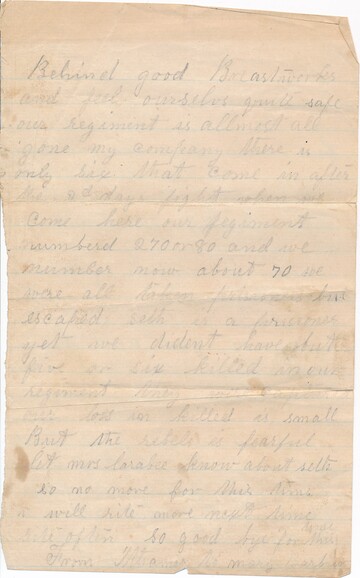 Behind good Breastworks
and feel ourselvs quite safe
our regiment is allmost all
gone my company there is
only six that come in after
the 2d days fight when we
come here our regiment
numberd 270 or 80 and we
number now about 70 we
were all taken prisoners but
escaped Seth is a prisoner
yet we dident have but
five or six killed in our
regiment
our loss in killed is small
But the rebels is fearful
let mrs larabee know about seth
so no more for this time
i will rite more next time
rite often so good bye for this
From